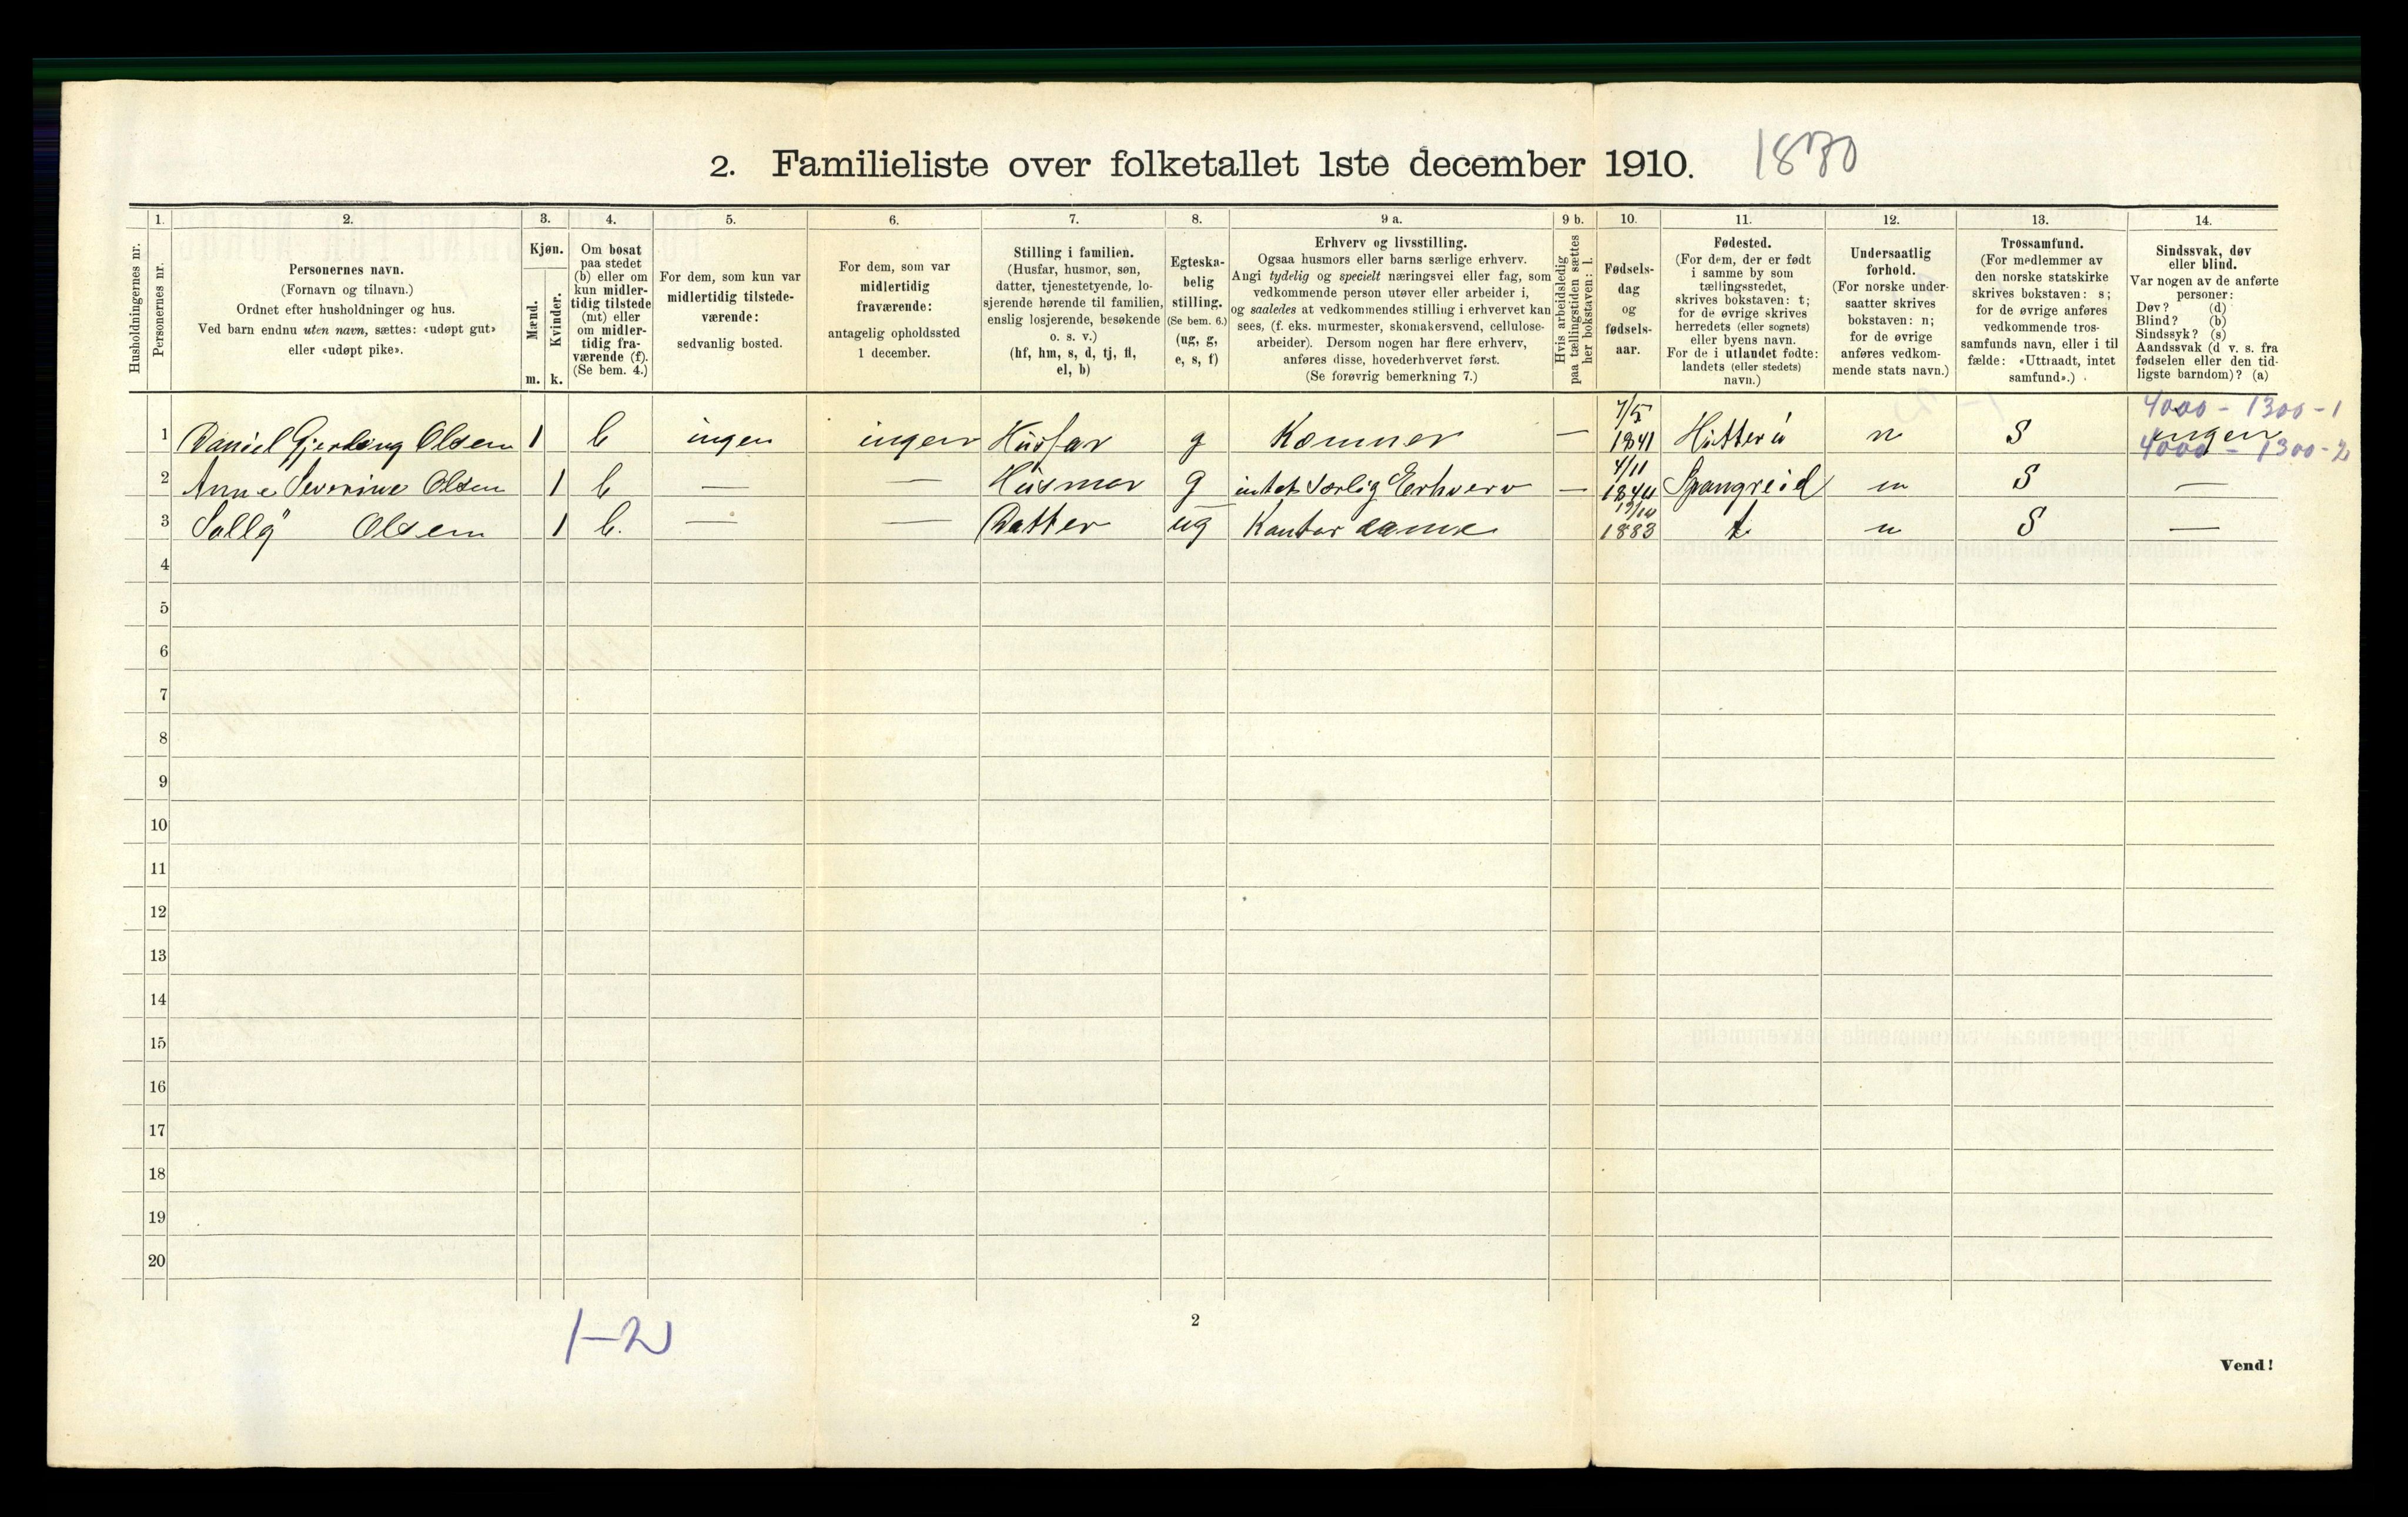 2. Familieliste over folketallet 1ste december 1910. 1870
1. 2. 3. 4. 5. 6. 7. 8. 9 a. 9 b. 10. 11. 12. 13. 14.
Husholdningernes nr.
Personernes nr.
Personernes navn.
(Fornavn og tilnavn.)
Ordnet efter husholdninger og hus.
Ved barn endnu uten navn, sættes: «udøpt gut»
eller «udøpt pike».
Kjøn.
Mænd.
Kvinder.
m. k.
Om bosat
paa stedet
(b) eller om
kun midler-
tidig tilstede
(mt) eller
om midler-
tidig fra-
værende (f).
(Se bem. 4.)
For dem, som kun var
midlertidig tilstede-
værende:
sedvanlig bosted.
For dem, som var
midlertidig
fraværende:
antagelig opholdssted
1 december.
Stilling i familien.
(Husfar, husmor, søn,
datter, tjenestetyende, lo-
sjerende hørende til familien,
enslig losjerende, besøkende
o. s. v.)
(hf, hm, s, d, tj, fl,
el, b)
Egteska-
belig
stilling.
(Se bem. 6.)
(ug, g,
e, s, f)
Erhverv og livsstilling.
Ogsaa husmors eller barns særlige erhverv.
Angi tydelig og specielt næringsvei eller fag, som
vedkommende person utøver eller arbeider i,
og saaledes at vedkommendes stilling i erhvervet kan
sees, (f. eks. murmester, skomakersvend, cellulose-
arbeider). Dersom nogen har flere erhverv,
anføres disse, hovederhvervet først.
(Se forøvrig bemerkning 7.)
Hvis arbeidsledig
paa tællingstiden sættes
her bokstaven: l.
Fødsels-
dag
og
fødsels-
aar.
Fødested.
(For dem, der er født
i samme by som
tællingsstedet,
skrives bokstaven: t;
for de øvrige skrives
herredets (eller sognets)
eller byens navn.
For de i utlandet fødte:
landets (eller stedets)
navn.)
Undersaatlig
forhold.
(For norske under-
saatter skrives
bokstaven: n;
for de øvrige
anføres vedkom-
mende stats navn.)
Trossamfund.
(For medlemmer av
den norske statskirke
skrives bokstaven: s;
for de øvrige anføres
vedkommende tros-
samfunds navn, eller i til
fælde: «Uttraadt, intet
samfund».)
Sindssvak, døv
eller blind.
Var nogen av de anførte
personer:
Døv? (d)
Blind? (b)
Sindssyk? (s)
Aandssvak (d v. s. fra
fødselen eller den tid-
ligste barndom)? (a)
4000 - 1300 - 1
1 Daniel Gjerding Olsen 1 b ingen ingen Husfar g Kæmner — 7/5 1841 Hitterö n S ingen
4000 - 1300 - 2
2 Anne Severine Olsen 1 b — — Husmor g intet særlig Eerhverv — 4/11 1844 Spangreid n S —
3 Sally Olsen 1 b. — — Datter ug Kontor dame 1883 t n S —
4
5
6
7
8
9
10
11
12
13
14
15
16
17
18
19
20
1-2
2
Vend!